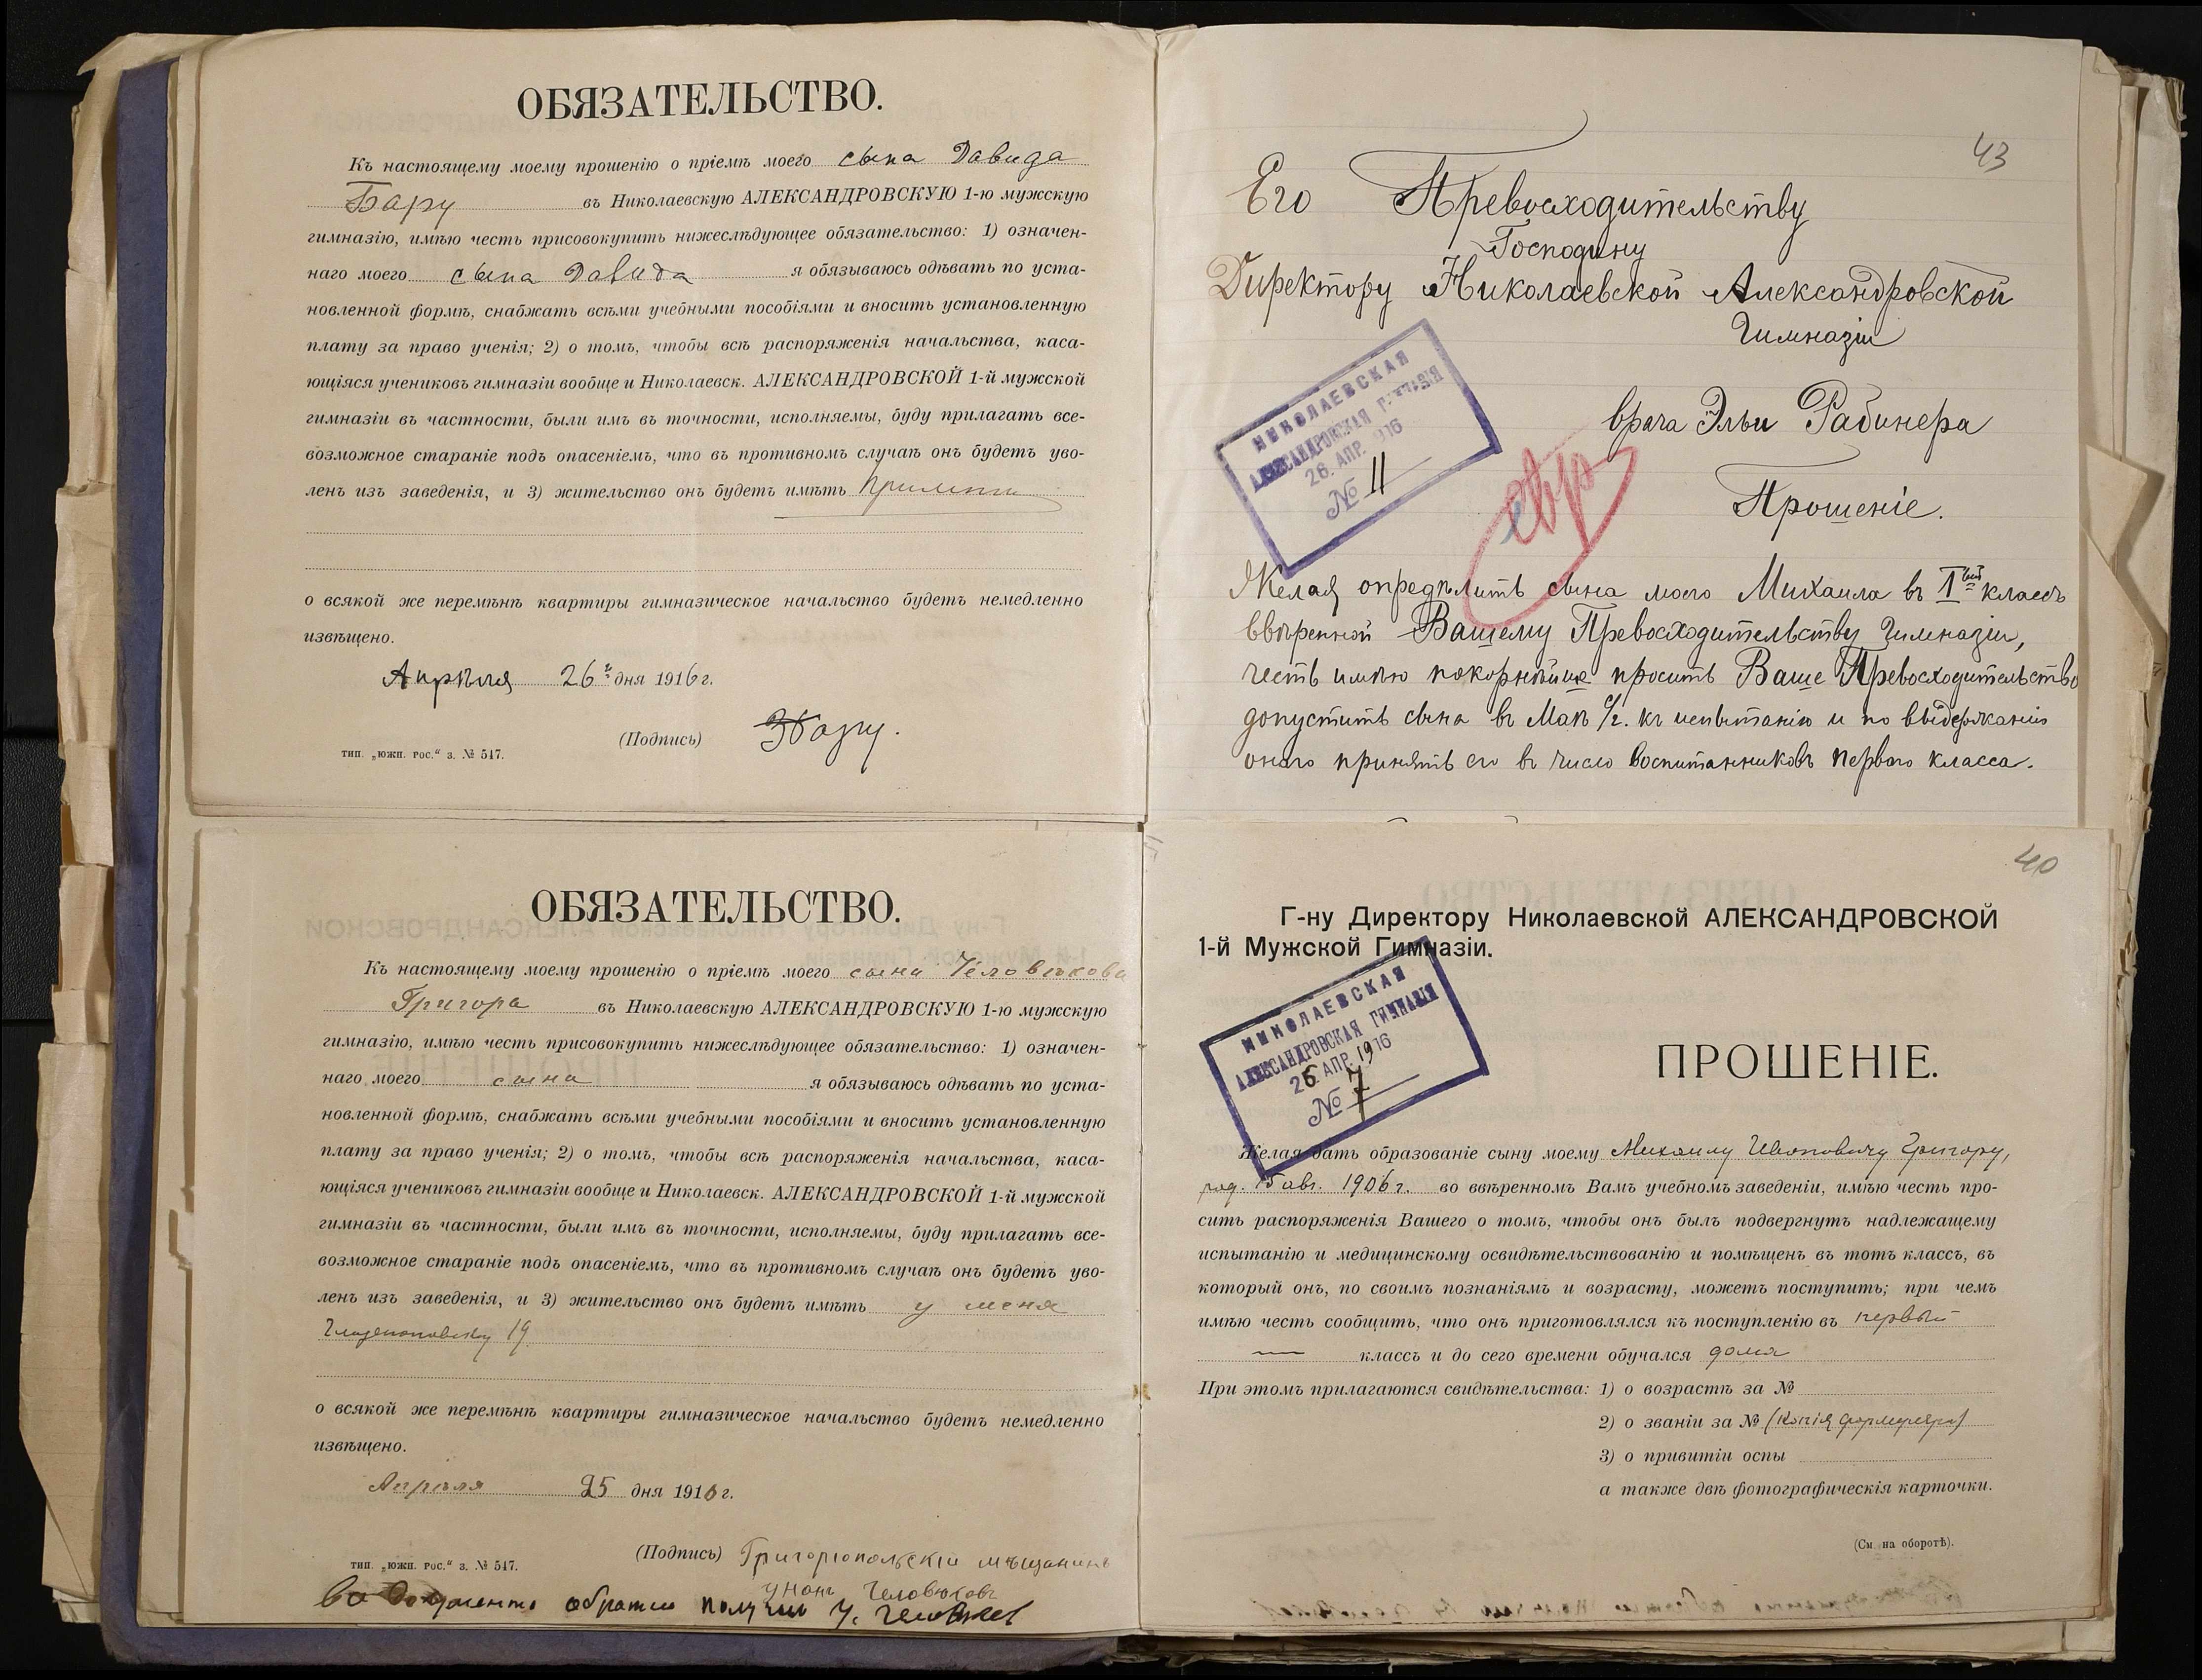 ОБЯЗАТЕЛЬСТВО.
Къ настоящему моему прошенію о пріемѣ моего сына Давида
Бару въ Николаевскую АЛЕКСАНДРОВСКУЮ 1-ю мужскую
гимназію, имѣю честь присовокупить нижеслѣдующее обязательство: 1) означен-
наго моего сына Давида я обязываюсь одѣвать по уста-
новленной формѣ, снабжать всѣми учебными пособіями и вносить установленную
плату за право ученія; 2) о томъ, чтобы всѣ распоряженія начальства, каса-
ющіяся учениковъ гимназіи вообще и Николаевск. АЛЕКСАНДРОВСКОЙ 1-й мужской
гимназіи въ частности, были имъ въ точности, исполняемы, буду прилагать все-
возможное стараніе подъ опасеніемъ, что въ противномъ случаѣ онъ будетъ уво-
ленъ изъ заведенія, и 3) жительство онъ будетъ имѣть
о всякой же перемѣнѣ квартиры гимназическое начальство будетъ немедленно
извѣщено.
Апрѣля 26 дня 1916 г.
(Подпись) ЭБару.
тип. „южн. рос.“ з. № 517.
43
Его Превосходительству
Господину
Директору Николаевской Александровской
Гимназіи
врача Эльи Рабинера
НИКОЛАЕВСКАЯ
АЛЕКСАНДРОВСКАЯ ГИМНАЗІЯ
26. АПР. 916
№ 11
евр
Прошеніе.
Желая опредѣлить сына моего Михаила въ 1ый классъ
ввѣренной Вашему Превосходительству Гимназіи,
честь имѣю покорнѣйше просить Ваше Превосходительство
допустить сына въ Маѣ с/г. къ испытанію и по выдержаніи
онаго принять его въ число воспитанниковъ перваго класса.
ОБЯЗАТЕЛЬСТВО.
Къ настоящему моему прошенію о пріемѣ моего сына Человѣкова
Григора въ Николаевскую АЛЕКСАНДРОВСКУЮ 1-ю мужскую
гимназію, имѣю честь присовокупить нижеслѣдующее обязательство: 1) означен-
наго моего сына я обязываюсь одѣвать по уста-
новленной формѣ, снабжать всѣми учебными пособіями и вносить установленную
плату за право ученія; 2) о томъ, чтобы всѣ распоряженія начальства, каса-
ющіяся учениковъ гимназіи вообще и Николаевск. АЛЕКСАНДРОВСКОЙ 1-й мужской
гимназіи въ частности, были имъ въ точности, исполняемы, буду прилагать все-
возможное стараніе подъ опасеніемъ, что въ противномъ случаѣ онъ будетъ уво-
ленъ изъ заведенія, и 3) жительство онъ будетъ имѣть у меня
19
о всякой же перемѣнѣ квартиры гимназическое начальство будетъ немедленно
извѣщено.
Апрѣля 25 дня 1916 г.
(Подпись) Григоріопольскій мѣщанинъ
тип. „южн. рос.“ з. № 517.
Человѣковъ
документы обратно получилъ
40
Г-ну Директору Николаевской АЛЕКСАНДРОВСКОЙ
1-й Мужской Гимназіи.
НИКОЛАЕВСКАЯ
АЛЕКСАНДРОВСКАЯ ГИМНАЗІЯ
25 АПР. 1916
№ 7
ПРОШЕНІЕ.
Желая дать образованіе сыну моему Михаилу Ивановичу Григору,
род. 15 авг. 1906 г. во ввѣренномъ Вамъ учебномъ заведеніи, имѣю честь про-
сить распоряженія Вашего о томъ, чтобы онъ былъ подвергнутъ надлежащему
испытанію и медицинскому освидѣтельствованію и помѣщенъ въ тотъ классъ, въ
который онъ, по своимъ познаніямъ и возрасту, можетъ поступить; при чемъ
имѣю честь сообщить, что онъ приготовлялся къ поступленію въ первый
— классъ и до сего времени обучался дома
При этомъ прилагаются свидѣтельства: 1) о возрастѣ за №
2) о званіи за № (копія формуляра)
3) о привитіи оспы
а также двѣ фотографическія карточки.
(См. на оборотѣ).